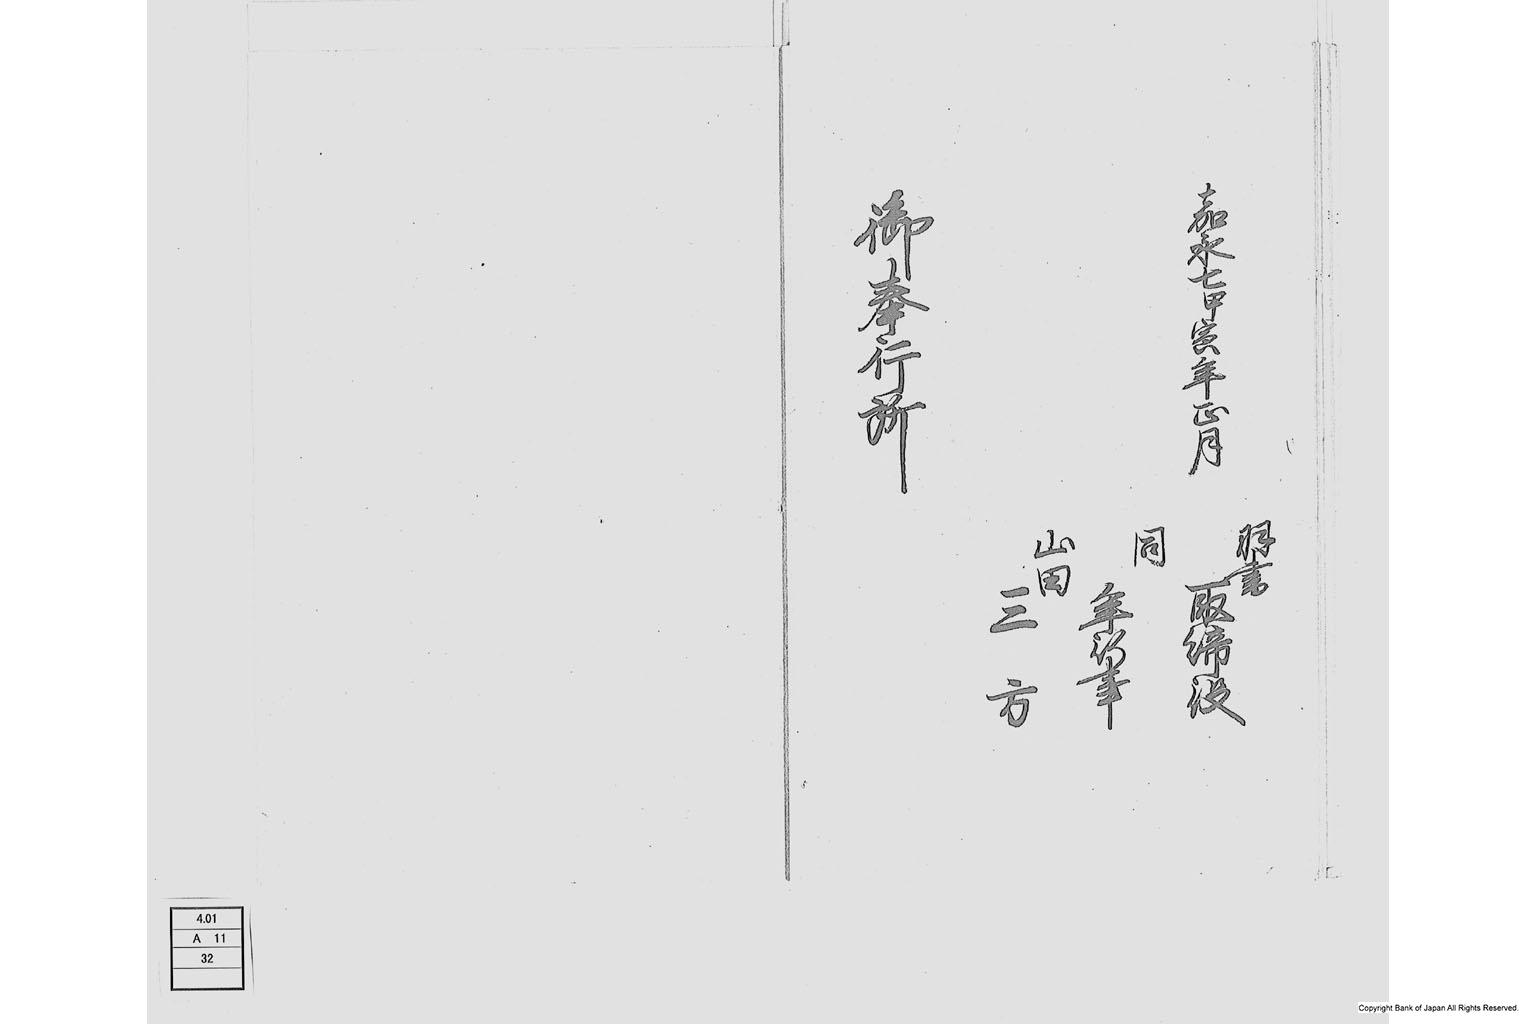 羽書
取締役
嘉永七甲寅年正月
同
年行事
山田
三方
御奉行所
4.01
A 11
32
Copyright Bank of Japan All Rights Reserved.